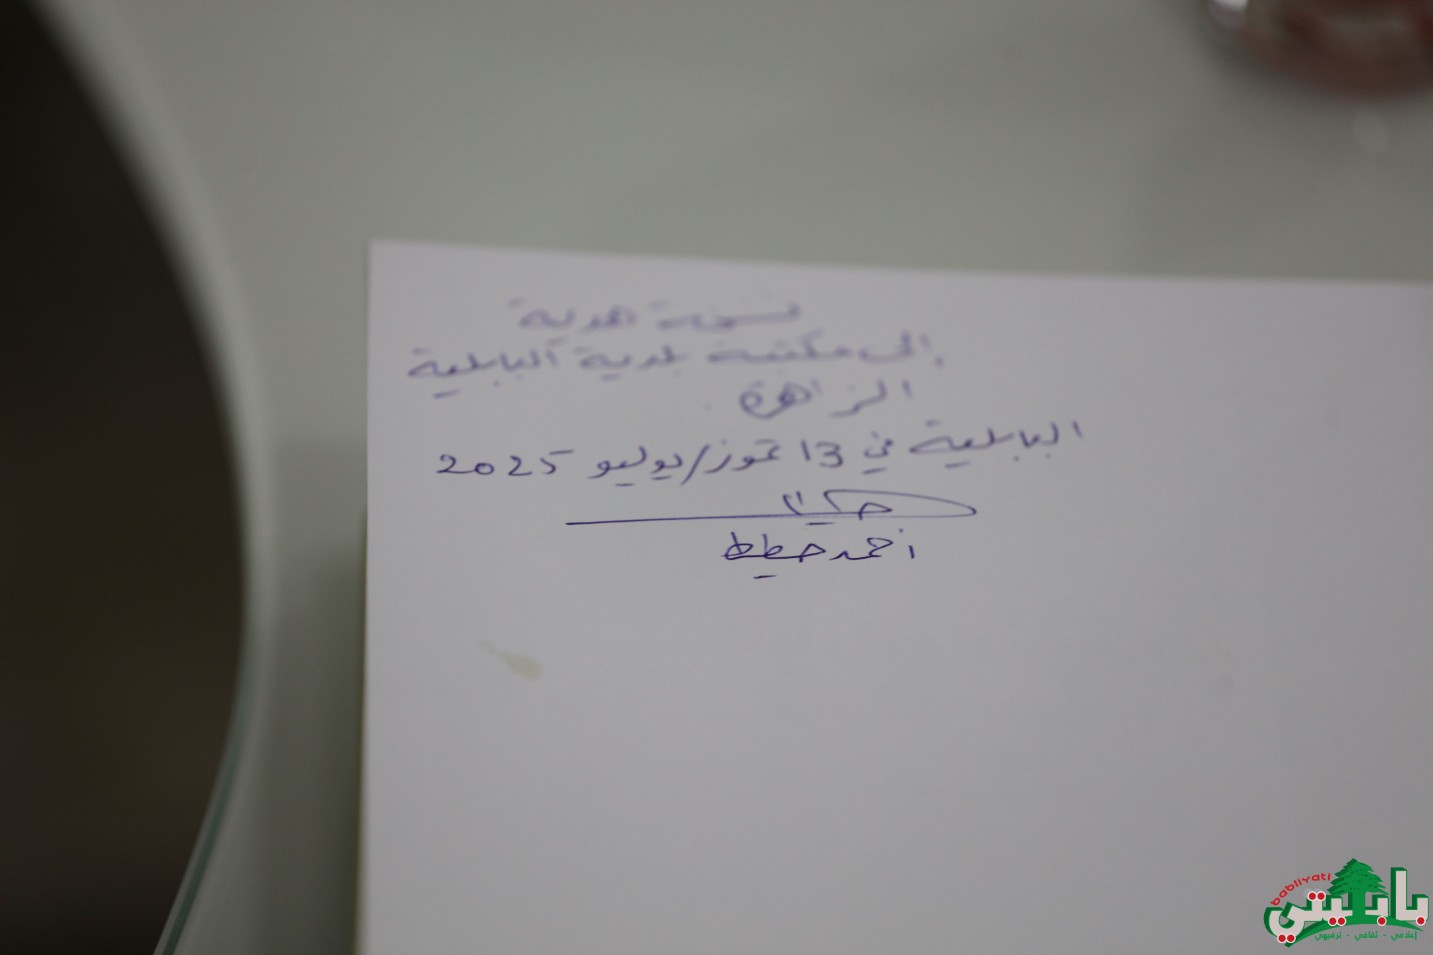 نسخة هدية
إلى مكتبة بلدية البابلية
الزاهرة
البابلية في 13 تموز/يوليو 2025
أحمد حطيط
babliyati
بابليتي
إعلامي - ثقافي - ترفيهي